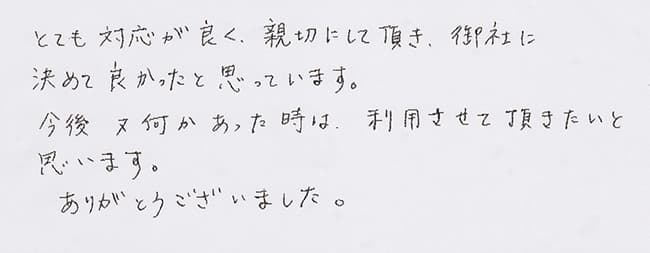 とても対応が良く、親切にして頂き、御社に
決めて良かったと思っています。
今後又何かあった時は、利用させて頂きたいと
思います。
ありがとうございました。